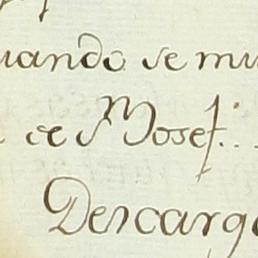 uando se mu
de Mosef...
Descargo